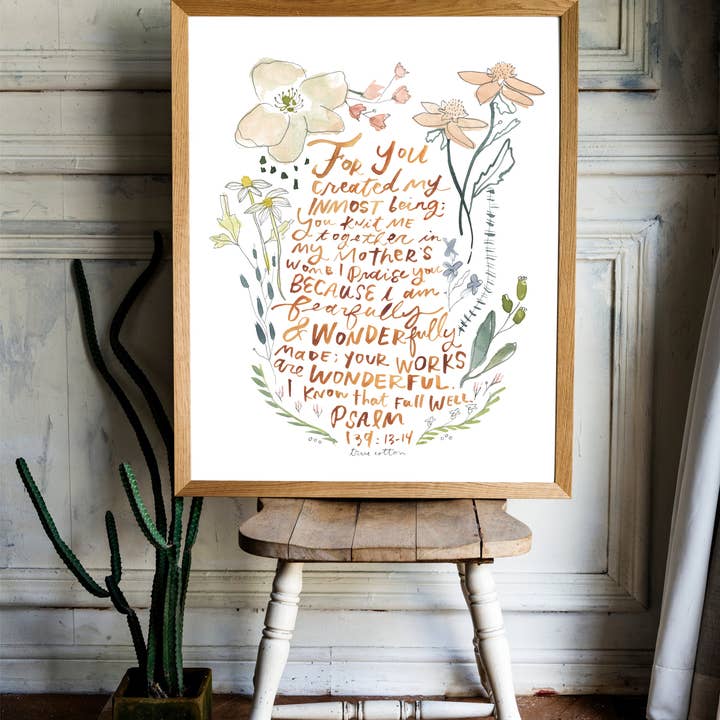 FOR YOU
created my
INMOST being;
YOU KNIT ME
together in
my MOTHER'S
WOMB I PRAISE YOU
BECAUSE I am
fearfully
& WONDERfully
MADE; YOUR WORKS
are WONDERFUL.
I KNOW that FULL WELL.
PSALM
139:13-14
true cotton